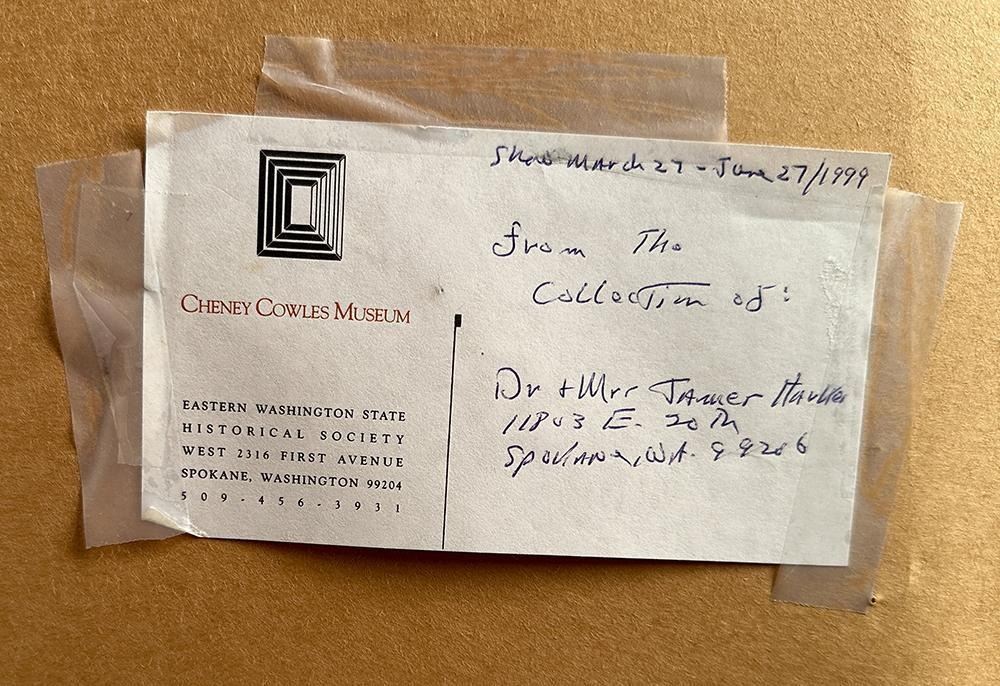 CHENEY COWLES MUSEUM
EASTERN WASHINGTON STATE
HISTORICAL SOCIETY
WEST 2316 FIRST AVENUE
SPOKANE, WASHINGTON 99204
509-456-3931
Show March 27 - June 27/1999
from The
Collection of:
Dr + Mrs James
11803 E. 20th
Spokane, WA. 99206